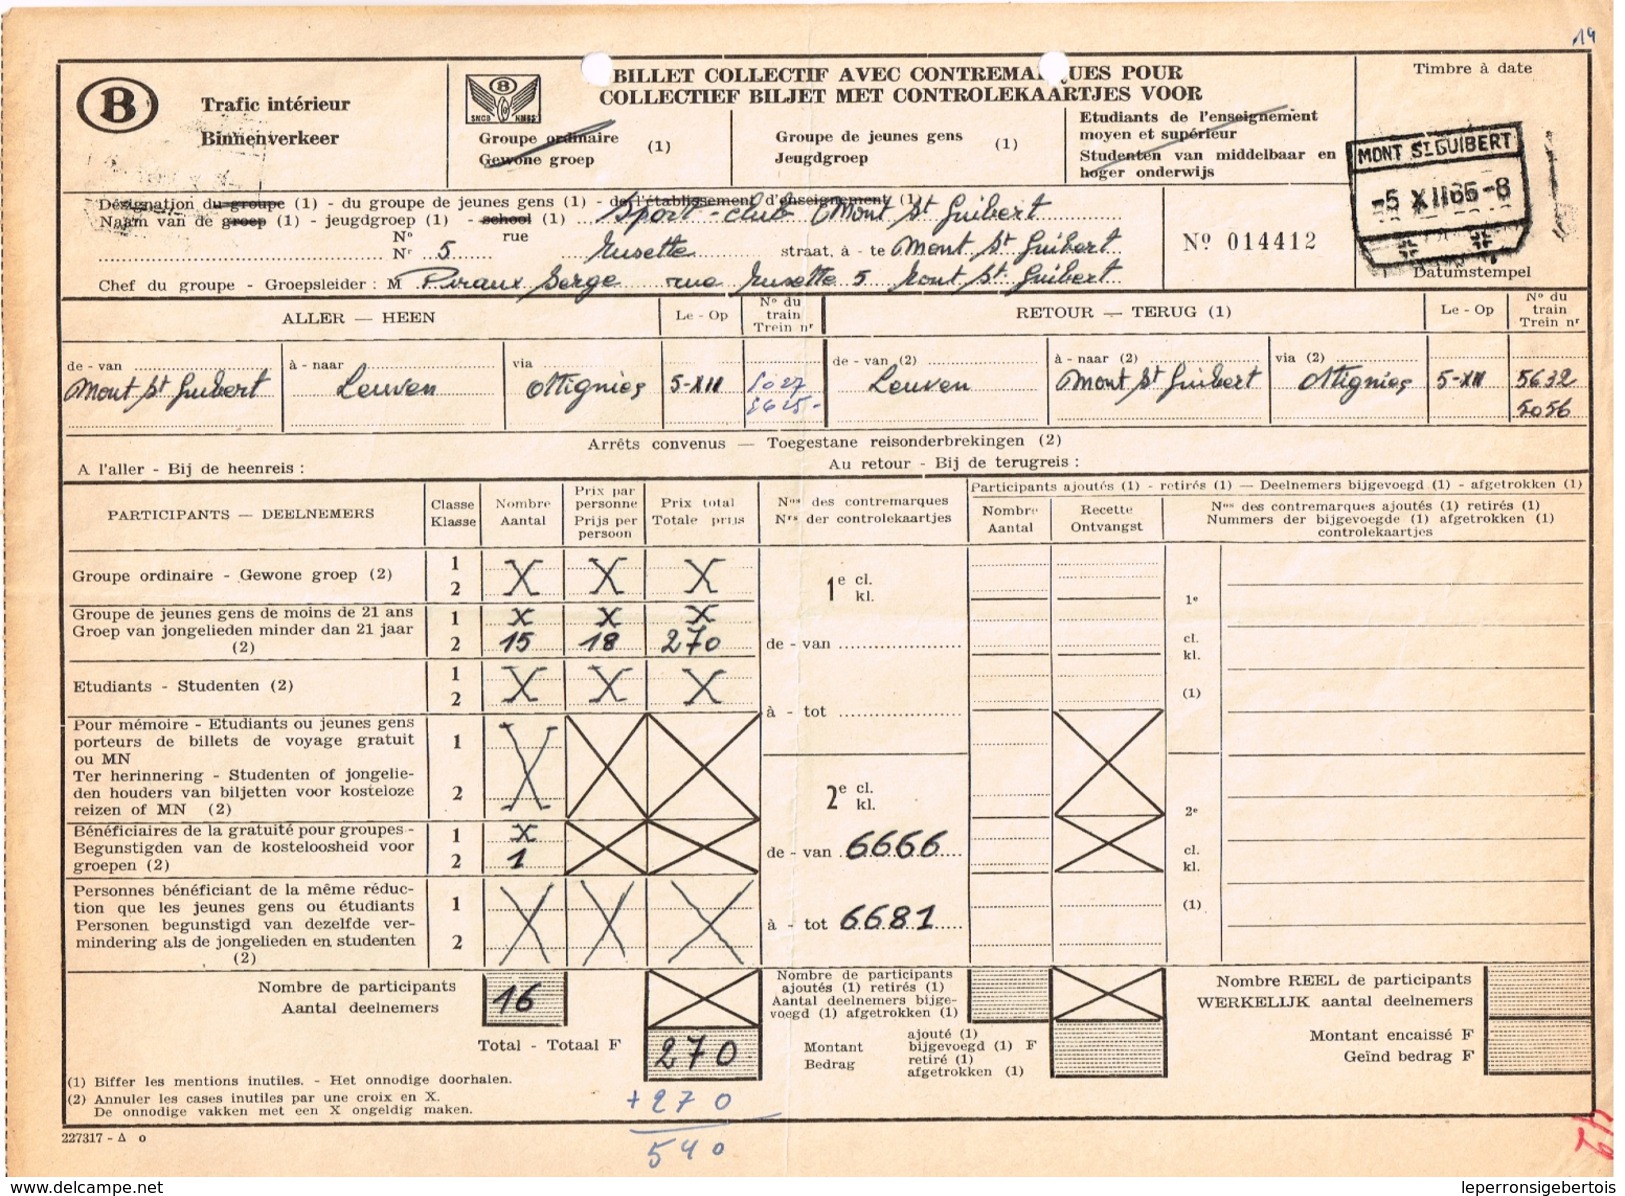 14
B
Trafic intérieur
Binnenverkeer
B
SNCB NMBS
BILLET COLLECTIF AVEC CONTREMARQUES POUR
COLLECTIEF BILJET MET CONTROLEKAARTJES VOOR
Groupe ordinaire (1)
Gewone groep
Groupe de jeunes gens (1)
Jeugdgroep
Etudiants de l'enseignement
moyen et supérieur
Studenten van middelbaar en
hoger onderwijs
Timbre à date
MONT ST GUIBERT
-5 XII 65-8
Datumstempel
Désignation du groupe (1) - du groupe de jeunes gens (1) - de l'établissement d'enseignement (1)
Naam van de groep (1) - jeugdgroep (1) - school (1) Sport-club Mont St Guibert
No rue
Nr 5 Rusette straat, à - te Mont St Guibert
No 014412
Chef du groupe - Groepsleider : M Piraux Serge rue Rusette 5 Mont St Guibert
ALLER — HEEN
Le - Op
No du train
Trein nr
RETOUR — TERUG (1)
Le - Op
No du train
Trein nr
de - van à - naar via
Mont St Guibert Leuven Ottignies 5-XII
de - van (2) à - naar (2) via (2)
Leuven Mont St Guibert Ottignies 5-XII 5632
5056
Arrêts convenus — Toegestane reisonderbrekingen (2)
A l'aller - Bij de heenreis :
Au retour - Bij de terugreis :
PARTICIPANTS — DEELNEMERS
Classe
Klasse
Nombre
Aantal
Prix par
personne
Prijs per
persoon
Prix total
Totale prijs
Nos des contremarques
Nrs der controlekaartjes
Participants ajoutés (1) - retirés (1) — Deelnemers bijgevoegd (1) - afgetrokken (1)
Nombre
Aantal
Recette
Ontvangst
Nos des contremarques ajoutés (1) retirés (1)
Nummers der bijgevoegde (1) afgetrokken (1)
controlekaartjes
Groupe ordinaire - Gewone groep (2)
1 X X X
2
Groupe de jeunes gens de moins de 21 ans
Groep van jongelieden minder dan 21 jaar
(2)
1 X X X
2 15 18 270
Etudiants - Studenten (2)
1 X X X
2
Pour mémoire - Etudiants ou jeunes gens
porteurs de billets de voyage gratuit
ou MN
Ter herinnering - Studenten of jongelie-
den houders van biljetten voor kosteloze
reizen of MN (2)
1 X
2
Bénéficiaires de la gratuité pour groupes -
Begunstigden van de kosteloosheid voor
groepen (2)
1 X
2 1
Personnes bénéficiant de la même réduc-
tion que les jeunes gens ou étudiants
Personen begunstigd van dezelfde ver-
mindering als de jongelieden en studenten
(2)
1 X X X
2
1e cl.
kl.
de - van
à - tot
2e cl.
kl.
de - van 6666
à - tot 6681
1e
cl.
kl.
(1)
2e
cl.
kl.
(1)
Nombre de participants
Aantal deelnemers
16
Total - Totaal F 270
Nombre de participants
ajoutés (1) retirés (1)
Aantal deelnemers bijge-
voegd (1) afgetrokken (1)
Montant
Bedrag
ajouté (1)
bijgevoegd (1) F
retiré (1)
afgetrokken (1)
Nombre REEL de participants
WERKELIJK aantal deelnemers
Montant encaissé F
Geïnd bedrag F
(1) Biffer les mentions inutiles. - Het onnodige doorhalen.
(2) Annuler les cases inutiles par une croix en X.
De onnodige vakken met een X ongeldig maken.
+270
540
227317 - Δ o
delcampe.net
leperronsigebertois